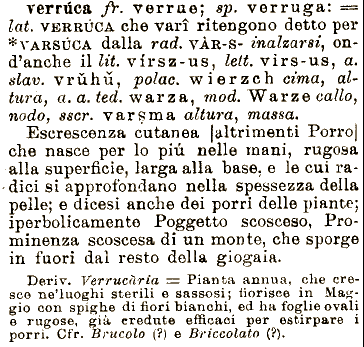 verrúca fr. verrue; sp. verruga: =
lat. VERRÚCA che varî ritengono detto per
*VARSÚCA dalla rad. VÀR-S- inalzarsi, on-
d'anche il lit. virsz-us, lett. virs-us, a.
slav. vrŭhŭ, polac. wierzch cima, al-
tura, a. a. ted. warza, mod. Warze callo,
nodo, sscr. varṣma altura, massa.
Escrescenza cutanea |altrimenti Porro|
che nasce per lo piú nelle mani, rugosa
alla superficie, larga alla base, e le cui ra-
dici si approfondano nella spessezza della
pelle; e dicesi anche dei porri delle piante;
iperbolicamente Poggetto scosceso, Pro-
minenza scoscesa di un monte, che sporge
in fuori dal resto della giogaia.
Deriv. Verrucària = Pianta annua, che cre-
sce ne'luoghi sterili e sassosi; fiorisce in Mag-
gio con spighe di fiori bianchi, ed ha foglie ovali
e rugose, già credute efficaci per estirpare i
porri. Cfr. Brucolo (?) e Briccolato (?).